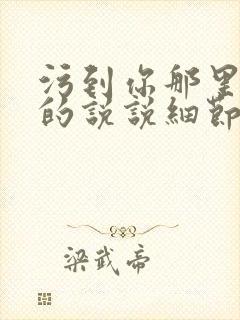 污到你那里
的說說細節
梁武帝